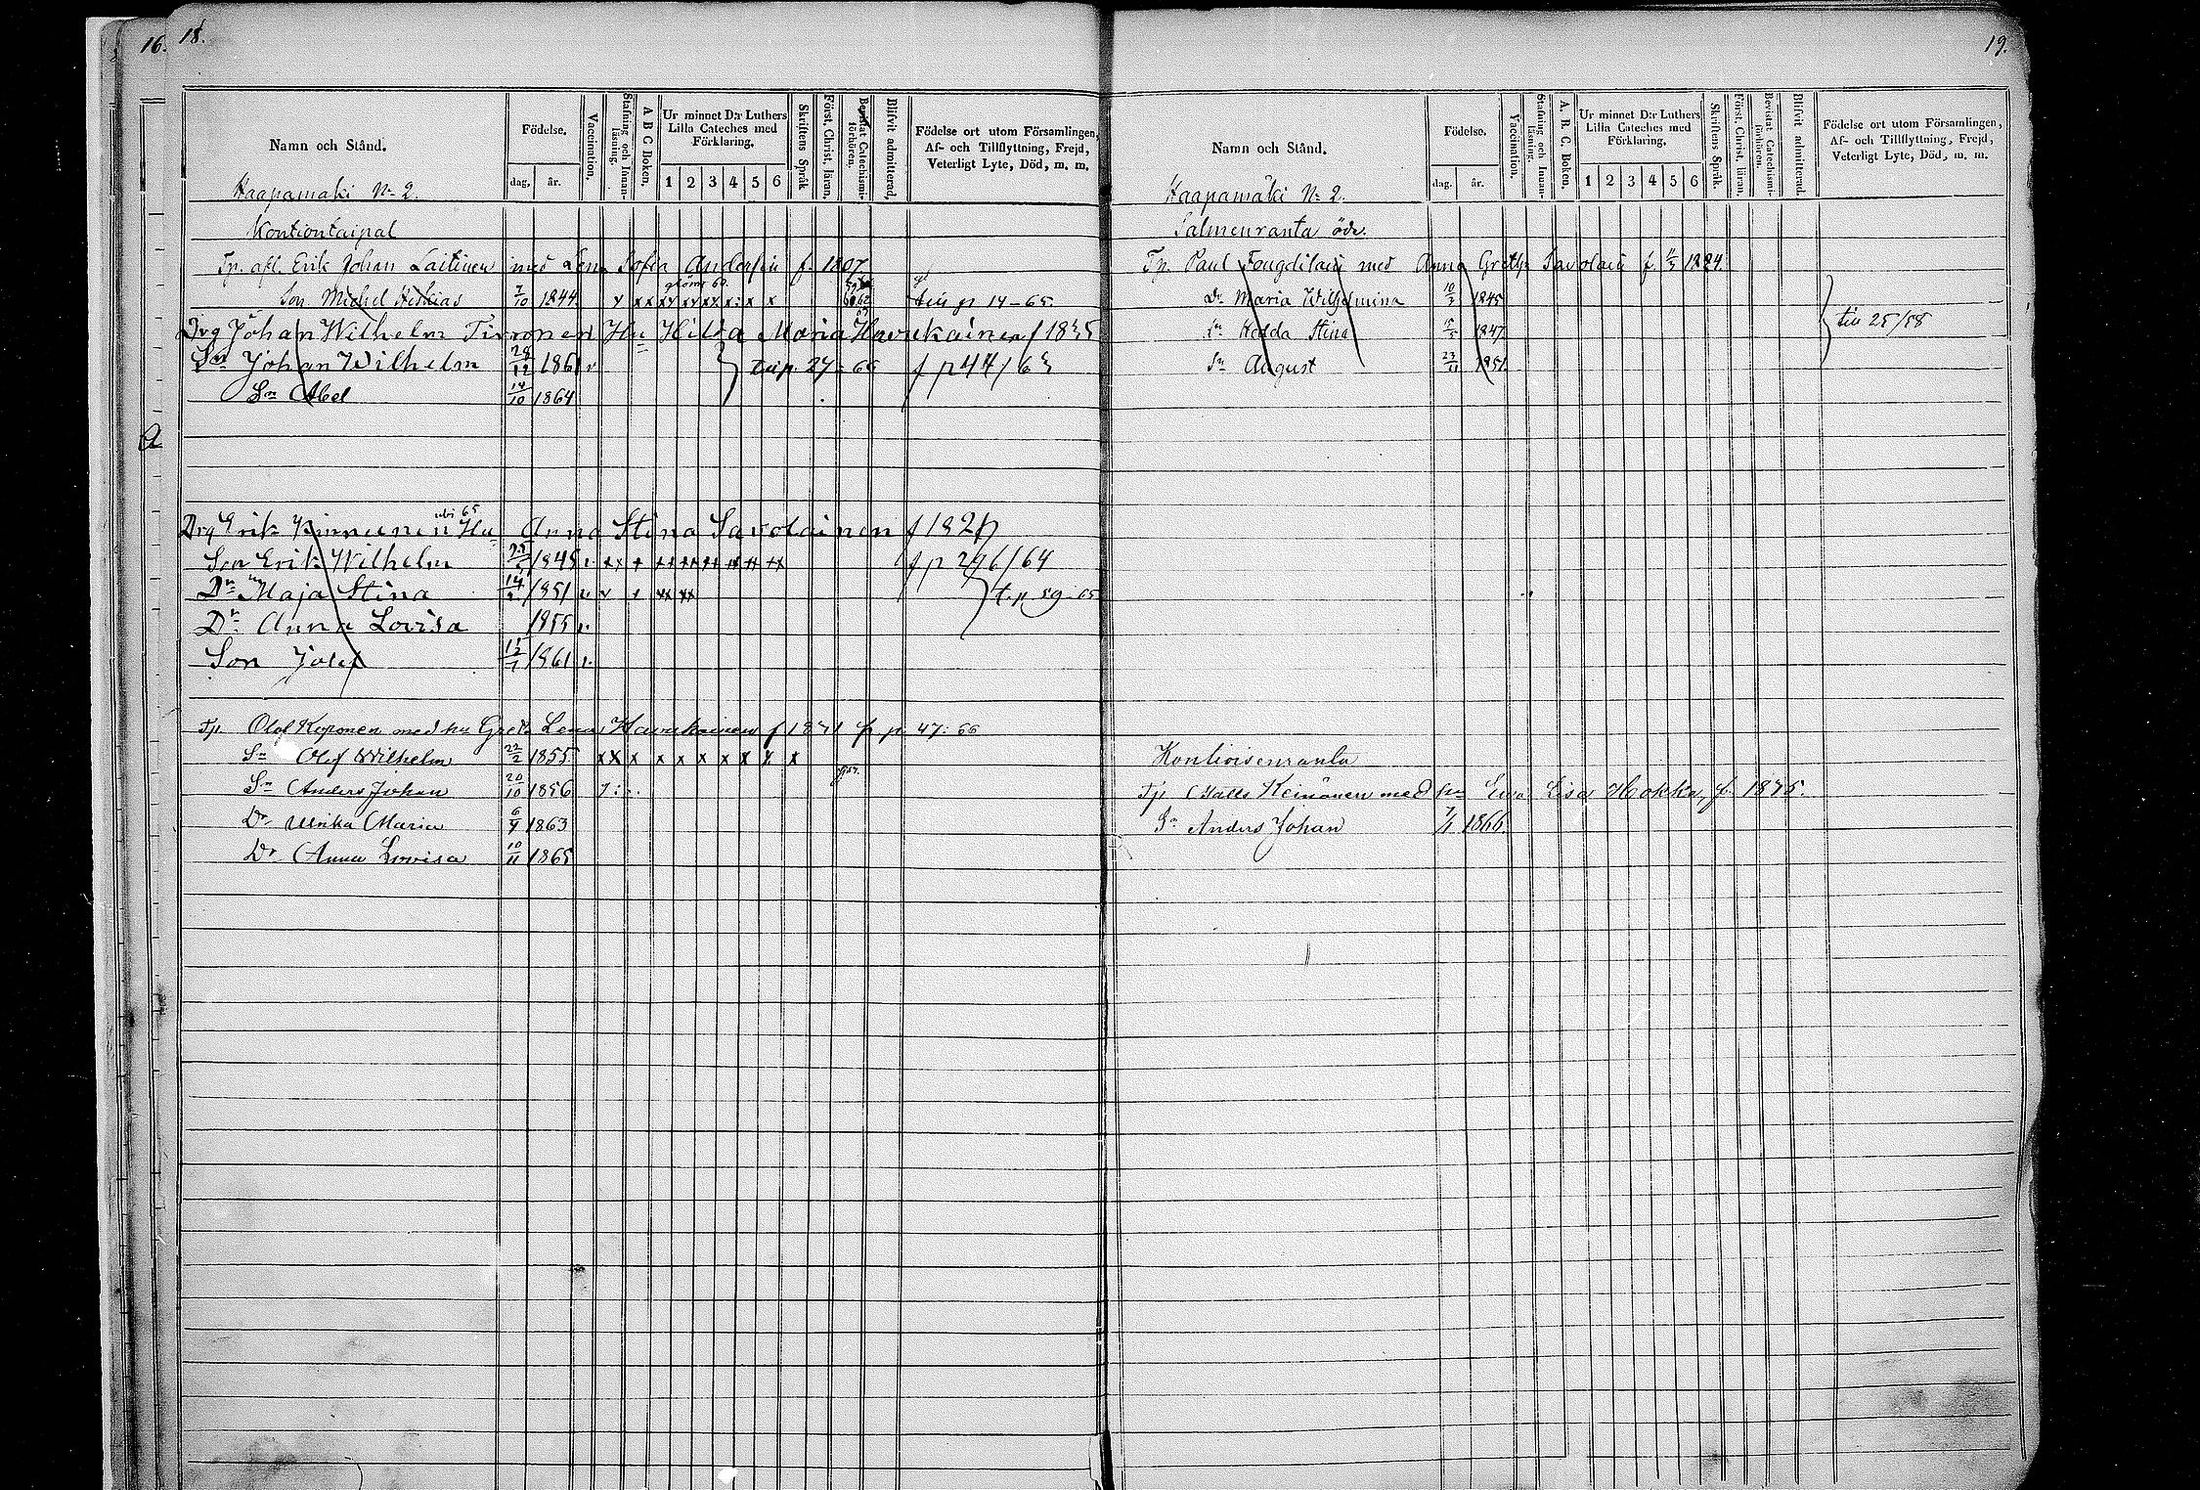 16. 18.
Namn och Stånd.
Födelse.
dag, år.
Vaccination,
Stafning och Innan-läsning,
A B C Boken,
Ur minnet D:r Luthers Lilla Cateches med Förklaring.
1 2 3 4 5 6
Skriftens Språk
Först. Christ. läran,
Bevistat Catechismi-förhören.
Blifvit admitterad,
Födelse ort utom Församlingen, Af- och Tillflyttning, Frejd, Veterligt Lyte, Död, m. m.
Haapamäki No 2.
Kontiontaipal
Tp. afl. Erik Johan Laitinen med Lena Sofia Andersin f. 1807
Son Michel 7/10 1844 v xx till p 14-65.
Drg Johan Wilhelm Tirronen Hu Hilda Maria Havukainen f 1835
Sn Johan Wilhelm 28/12 1861 v till p. 27-66 f p 44/63
Sn Abel 14/10 1864
Drg Erik Kinnunen Hu Anna Stina Savolainen f 182
Son Erik Wilhelm 1848 f p 296/64
Dr Maja Stina 1851 t. p 59-65
Dr Anna Lovisa 1855 v.
Son 1861 v.
Tp. Olof Koponen med hu Greta Lena Havukainen f 1831 fr p. 47: 66
Sn Olof Wilhelm 22/2 1855 x X x x x x x x x x
Sn Anders Johan 20/10 1856
Dr Ulrika Maria 6/9 1863
Dr Anna Lovisa 10/11 1865
19.
Namn och Stånd.
Födelse.
dag. år.
Vaccination,
Stafning och Innan-läsning,
A. B. C. Boken,
Ur minnet D:r Luthers Lilla Cateches med Förklaring.
1 2 3 4 5 6
Skriftens Språk.
Först. Christ. läran,
Bevistat Catechismi-förhören.
Blifvit admitterad
Födelse ort utom Församlingen, Af- och Tillflyttning, Frejd, Veterligt Lyte, Död, m. m.
Haapamäki No 2.
Salmenranta öde.
Tp. Paul med Anna Greta Savolain f. 1824.
Dr Maria Wilhelmina 10/3 1845
Hedda Stina 1847 till 25/58
Sn August 23/11 1851
Kontioisenranta
Tp Matts Keinänen med hu Eva Lisa Hokka, f. 1845.
Sn Anders Johan 1866